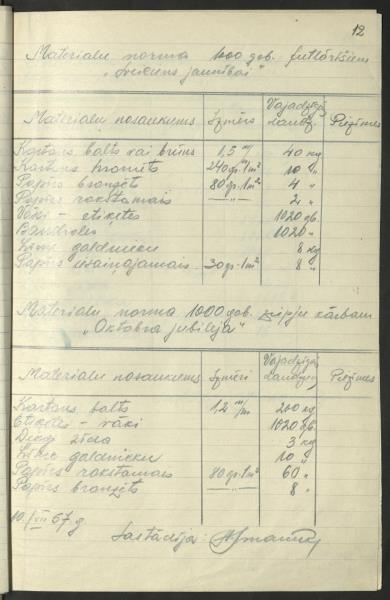 12
Materialu norma 1000 gob. futlārīšiem
"Sveiciens jaunībai"
Materialu nosaukums Izmērs Vajadzīgs daudz. Piezīmes
Kartons balts vai brūns 1,5 m/m 40 kg
Kartons hromēts 240 gr. 1m² 10 "
Papīrs bronzēts 80 gr. 1m² 4 "
Papīrs rakstamais —"— 2 "
Vāki – etiķetes 1020 gb.
Banderoles 1020 "
Līme galdnieku 8 kg
Papīrs iesaiņojamais 30 gr. 1m² 8 "
Materialu norma 1000 gob. ziepju kārbām
"Oktobra jubileja"
Materialu nosaukums Izmēri Vajadzīgs daudzums Piezīmes
Kartons balts 1,2 m/m 200 kg
Etiķetes – vāki 1020 gb.
Diegi zīda 3 kg
Līme galdnieku 10 "
Papīrs rakstamais 80 gr. 1m² 60 "
Papīrs bronzēts —"— 8 "
10./VII 67. g
Sastādīja: